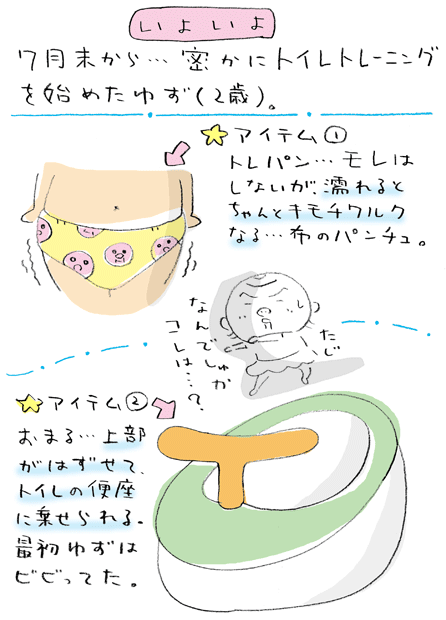 いよいよ
7月末から…密かにトイレトレーニング
を始めたゆず(2歳)。
アイテム①
トレパン…モレは
しないが、濡れると
ちゃんとキモチワルク
なる…布のパンチュ。
なんでしゅか
コレは…?
たじ
アイテム②
おまる…上部
がはずせて、
トイレの便座
に乗せられる。
最初ゆずは
ビビってた。